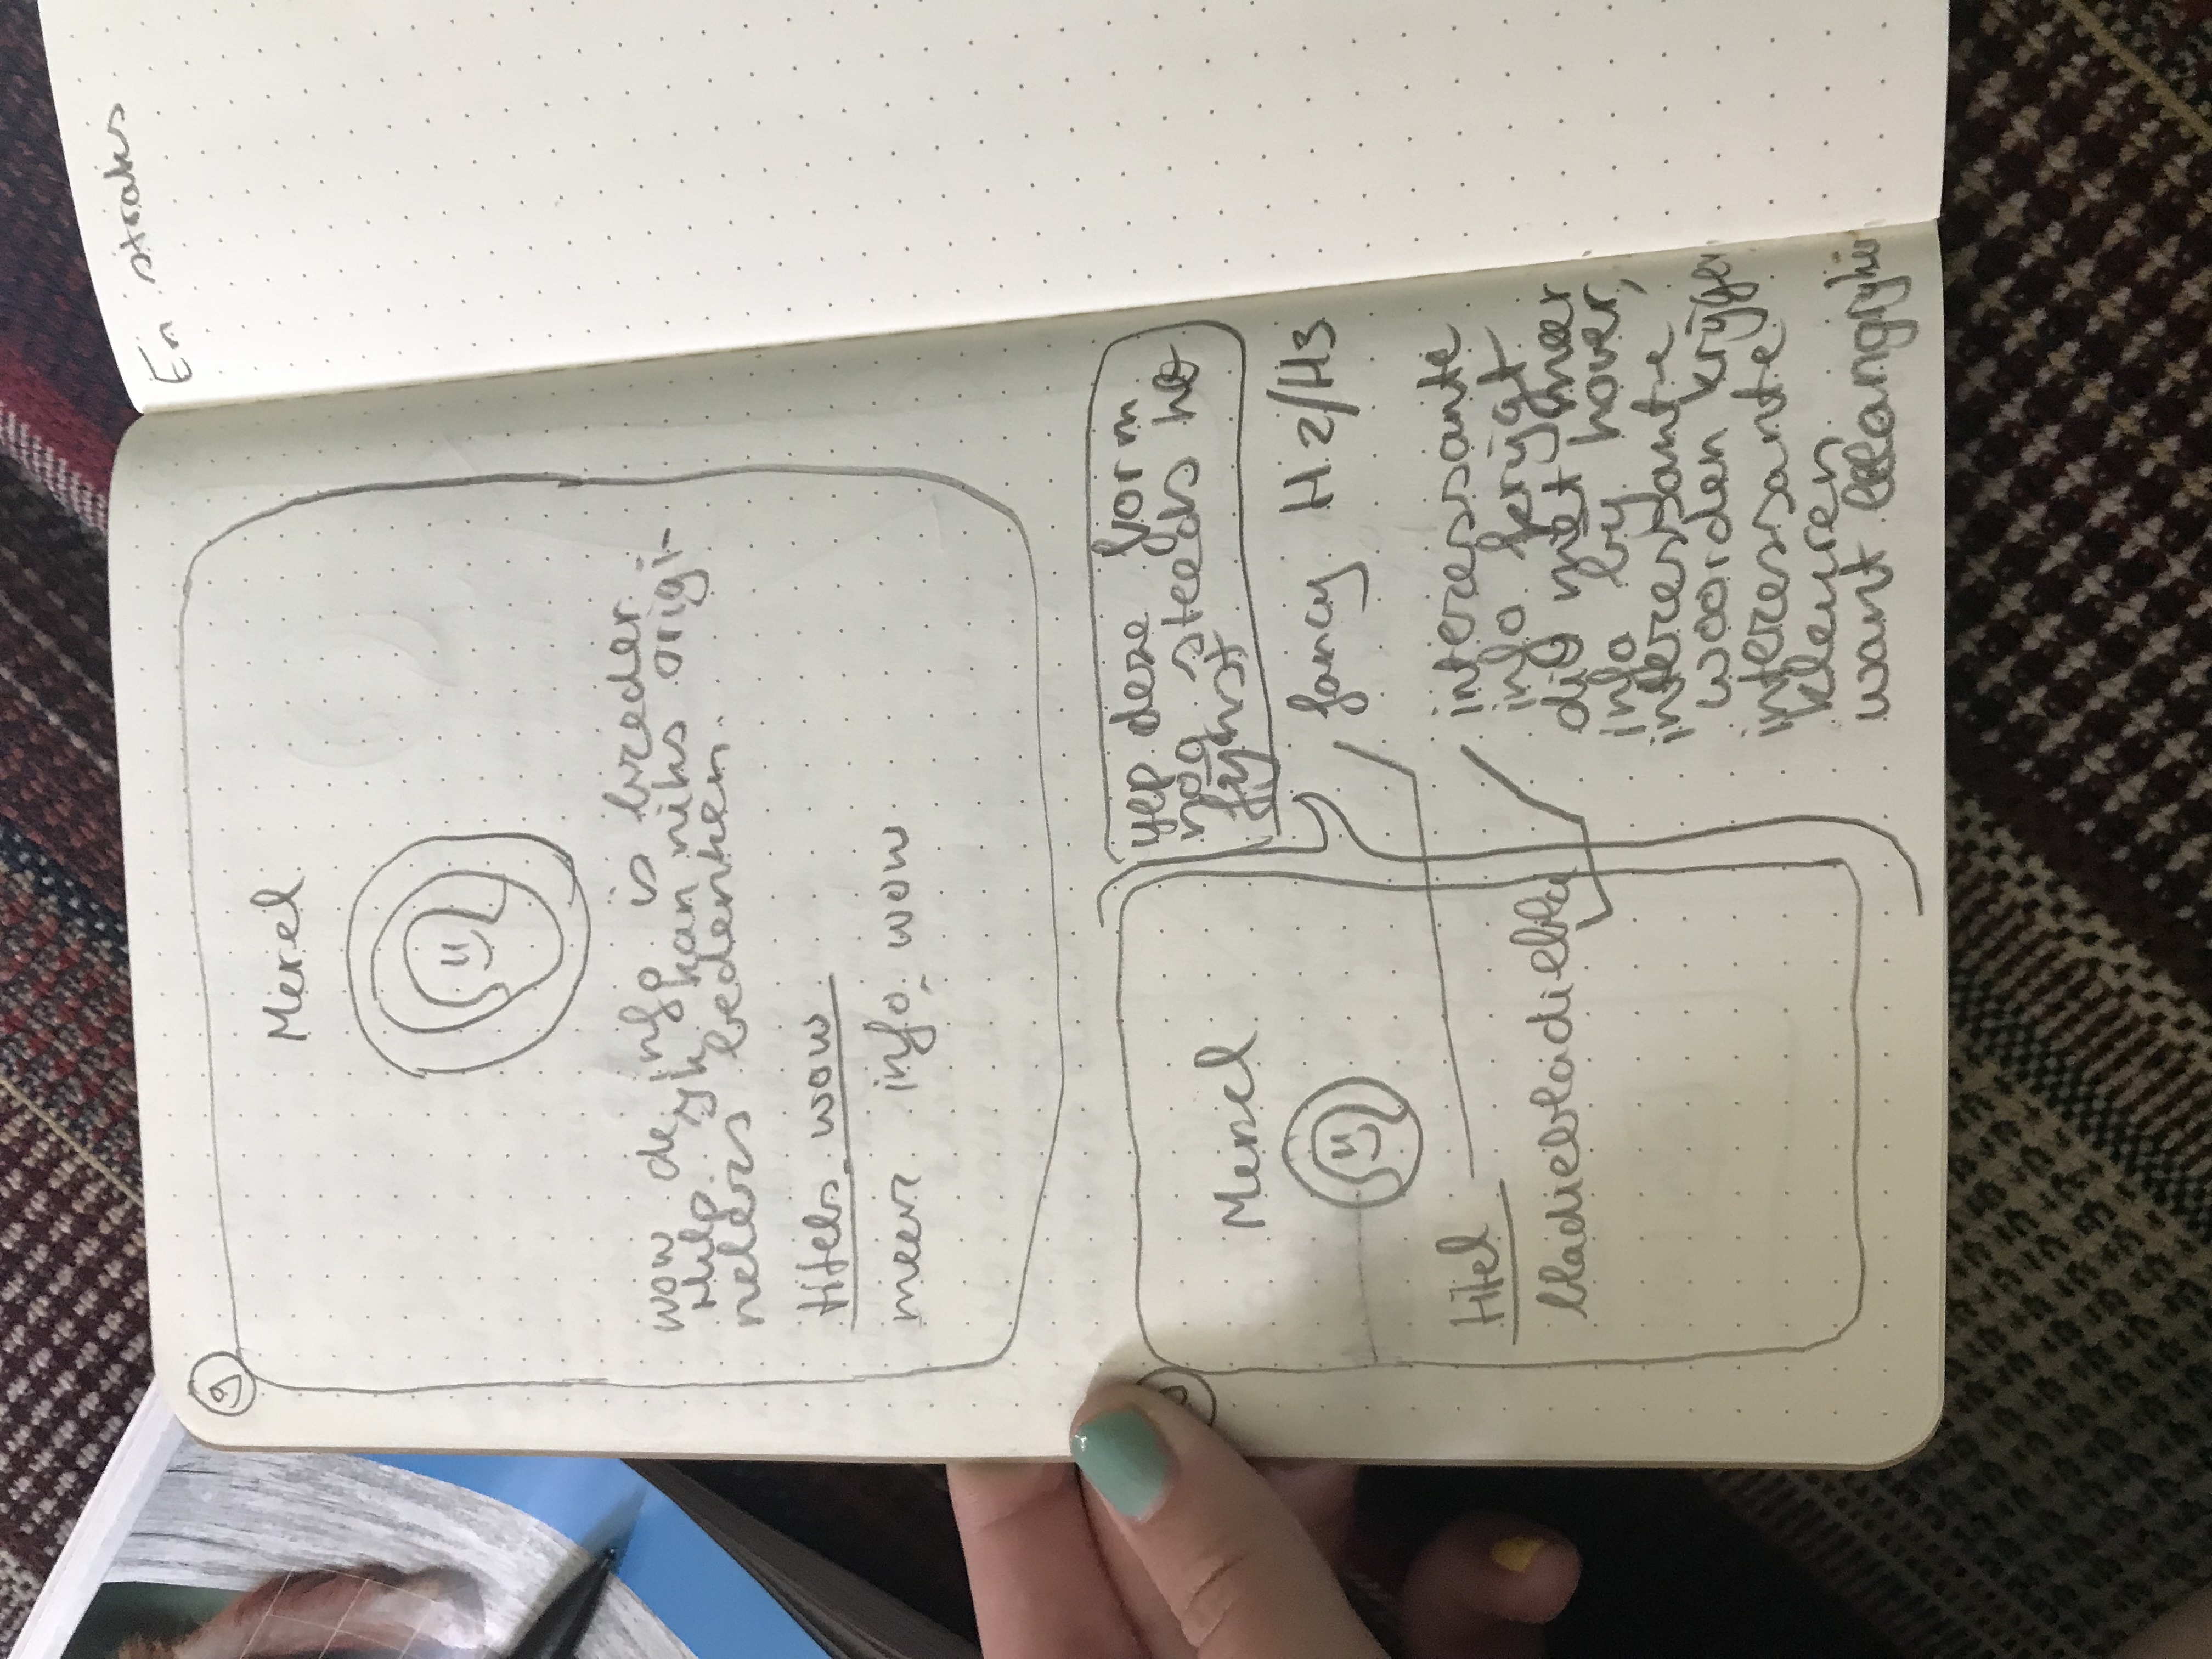 9
Merel
wow de info is breder
Help ik kan niks origi-
nelers bedenken
titels wow
meer info wow
Merel
titel
bladiebladiebla
yep deze form
nog steeds het
fijnst
fancy H2/H3
interessante
info krijgt
div met meer
info bij hover,
interessante
woorden krijgen
interessante
kleuren
want
En straks